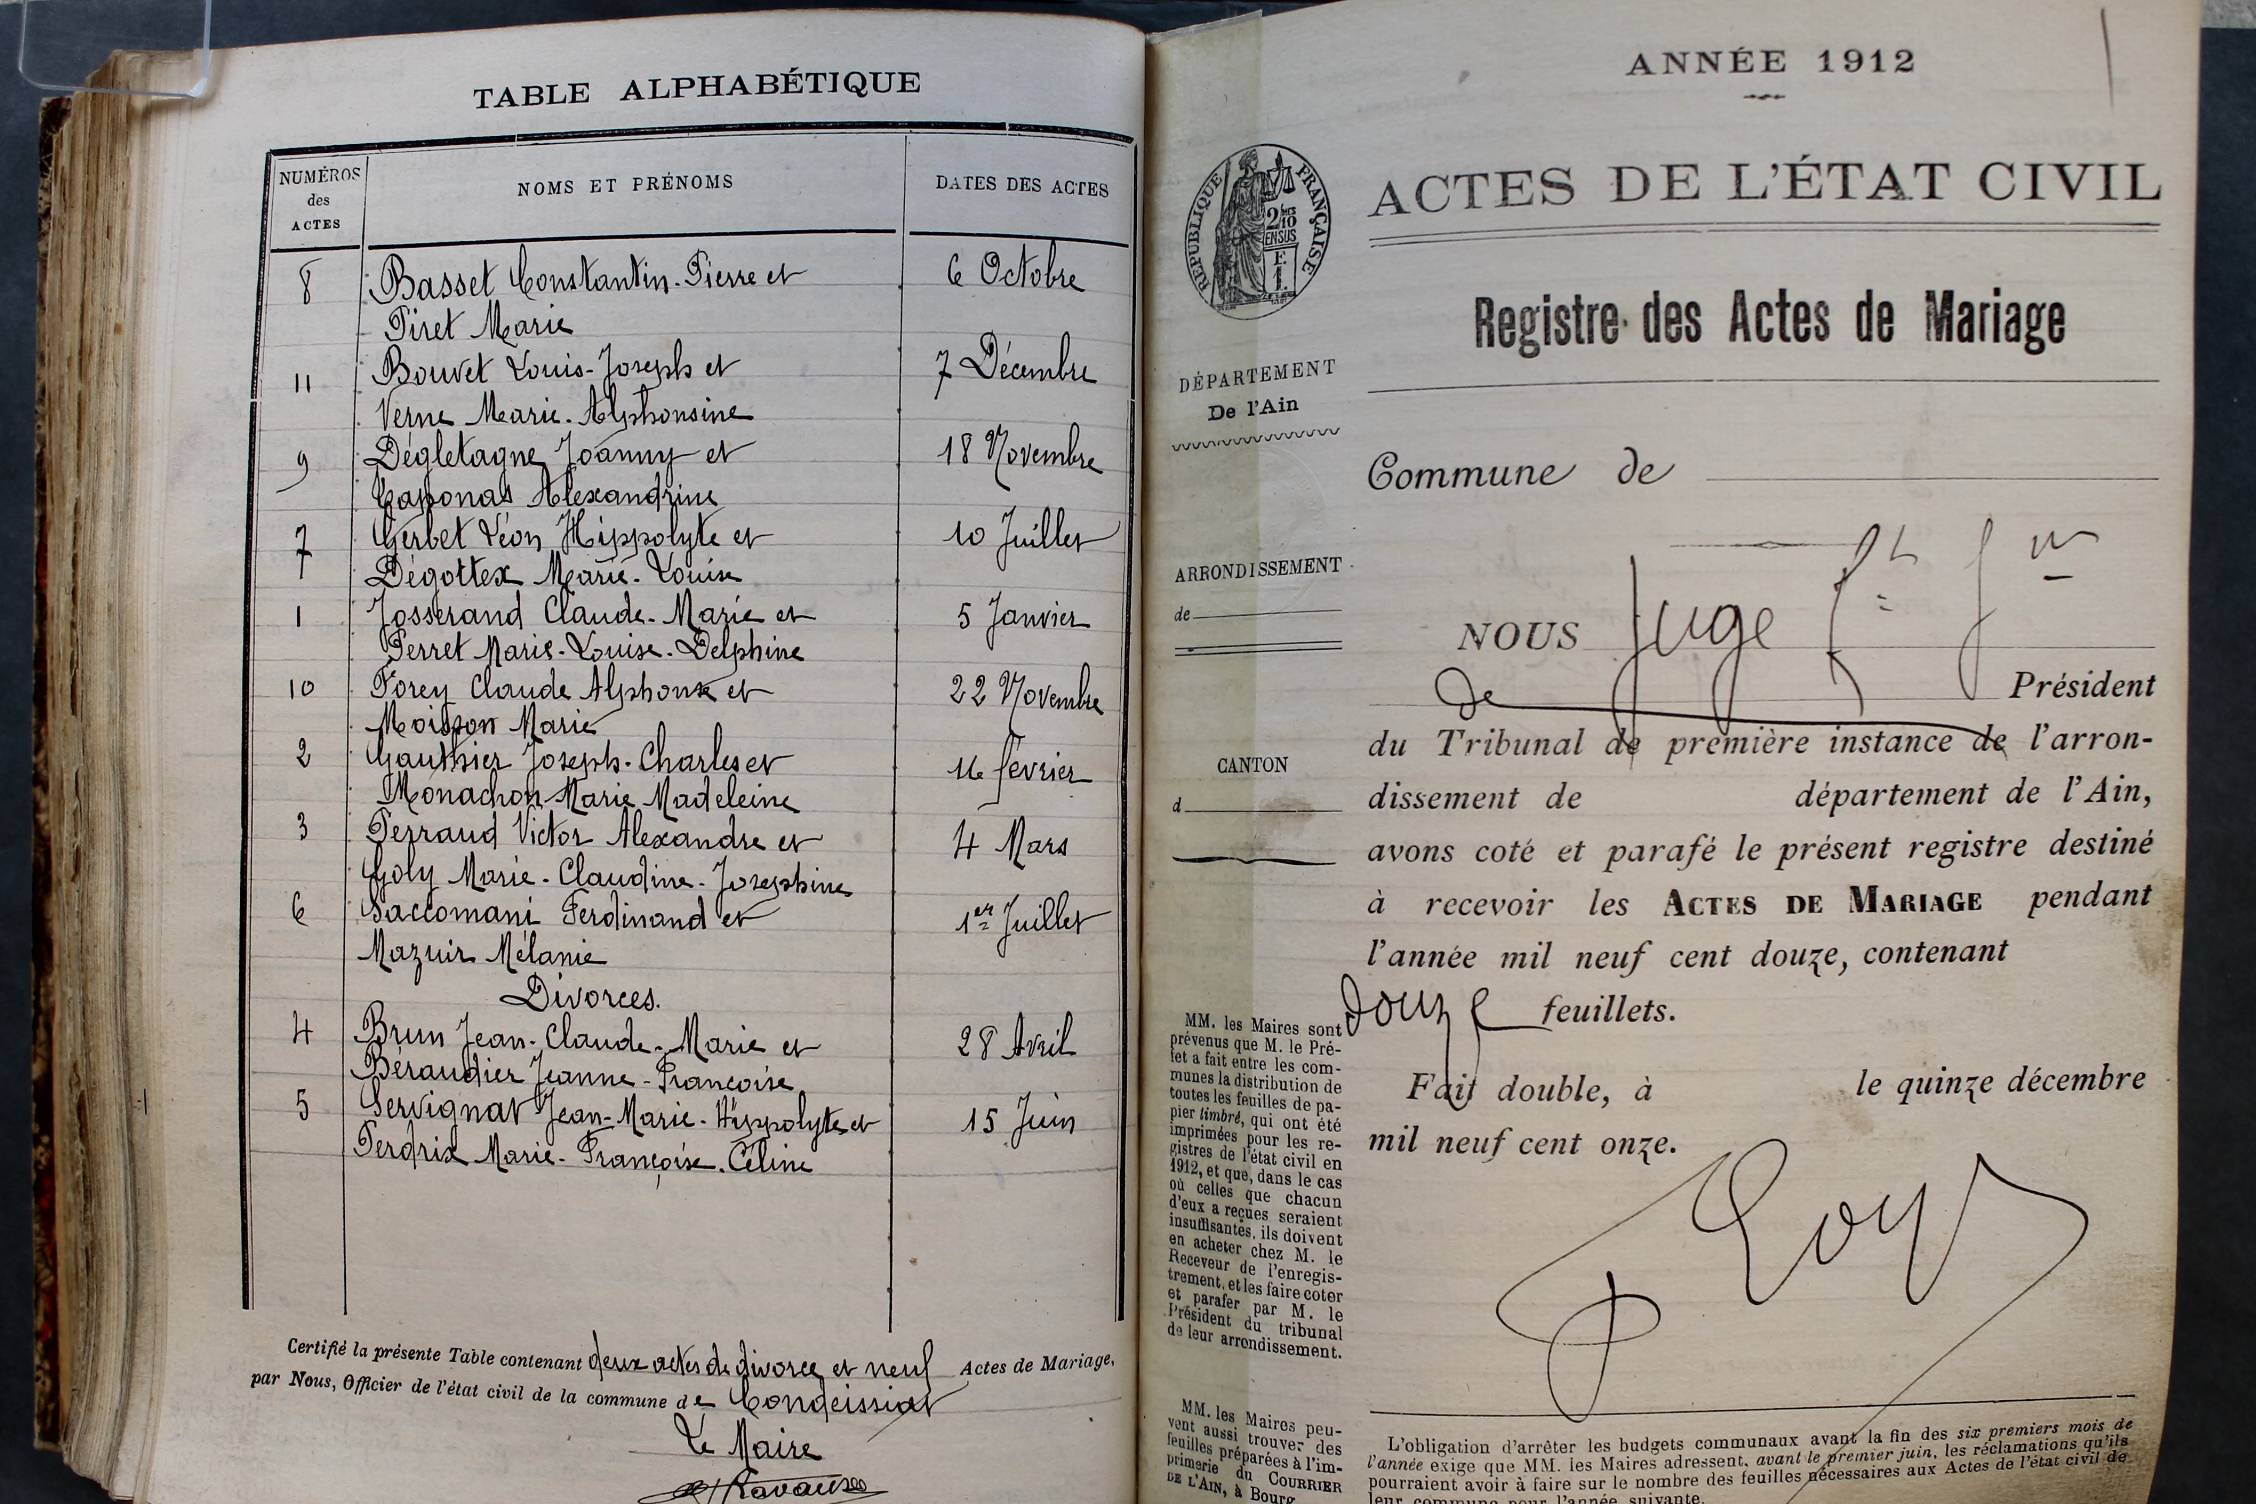 TABLE ALPHABÉTIQUE
NUMÉROS des ACTES
NOMS ET PRÉNOMS
DATES DES ACTES
8 Basset Constantin-Pierre et 6 Octobre
Piret Marie
11 Bouvet Louis-Joseph et 7 Décembre
Verne Marie-Alphonsine
9 Dégletagne Joanny et 18 Novembre
Caponas Alexandrine
7 Gerbet Léon Hippolyte et 10 Juillet
Dégottex Marie-Louise
1 Josserand Claude-Marie et 5 Janvier
Perret Marie-Louise-Delphine
10 Forey Claude Alphonse et 22 Novembre
Moisson Marie
2 Gauthier Joseph-Charles et 16 février
Monachon Marie Madeleine
3 Perraud Victor Alexandre et 4 Mars
Goly Marie-Claudine-Josephine
6 Saccomani Ferdinand et 1er Juillet
Mazuir Mélanie
Divorces.
4 Brun Jean-Claude-Marie et 28 Avril
Béraudier Jeanne-Françoise
5 Servignat Jean-Marie-Hippolyte et 15 Juin
Perdrix Marie-Françoise-Céline
Certifié la présente Table contenant deux actes de divorce et neuf Actes de Mariage,
par Nous, Officier de l'état civil de la commune de Condeissiat
Le Maire
ANNÉE 1912
ACTES DE L'ÉTAT CIVIL
RÉPUBLIQUE FRANÇAISE
Registre des Actes de Mariage
DÉPARTEMENT
De l'Ain
Commune de
ARRONDISSEMENT
de
NOUS Juge
de Président
du Tribunal de première instance de l'arron-
CANTON
d
dissement de département de l'Ain,
avons coté et parafé le présent registre destiné
à recevoir les ACTES DE MARIAGE pendant
l'année mil neuf cent douze, contenant
douze feuillets.
Fait double, à le quinze décembre
mil neuf cent onze.
MM. les Maires sont
prévenus que M. le Pré-
fet a fait entre les com-
munes la distribution de
toutes les feuilles de pa-
pier timbré, qui ont été
imprimées pour les re-
gistres de l'état civil en
1912, et que, dans le cas
où celles que chacun
d'eux a reçues seraient
insuffisantes, ils doivent
en acheter chez M. le
Receveur de l'enregis-
trement, et les faire coter
et parafer par M. le
Président du tribunal
de leur arrondissement.
MM. les Maires peu-
vent aussi trouver des
feuilles préparées à l'im-
primerie du COURRIER
DE L'AIN, à Bourg
L'obligation d'arrêter les budgets communaux avant la fin des six premiers mois de
l'année exige que MM. les Maires adressent, avant le premier juin, les réclamations qu'ils
pourraient avoir à faire sur le nombre des feuilles nécessaires aux Actes de l'état civil de
leur commune pour l'année suivante.